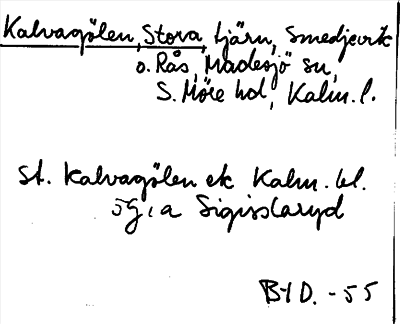 Kalvagölen, Stora, tjärn, Smedjevik
o. Rås, Madesjö sn,
S. Möre hd, Kalm. l.
St. Kalvagölen ek Kalm. bl.
5g, a Sigislaryd
BHD. -55